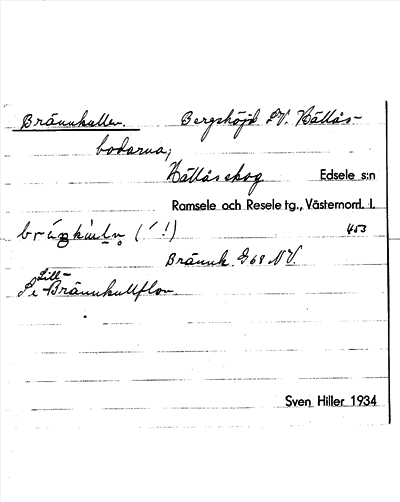 Brännkullen. Bergshöjd SV. Hällås-
bodarna;
Hällåskog Edsele s:n
Ramsele och Resele tg., Västernorrl. l.
453
Brännk. G68 NV.
Lill-
Se Brännkullflon.
Sven Hiller 1934